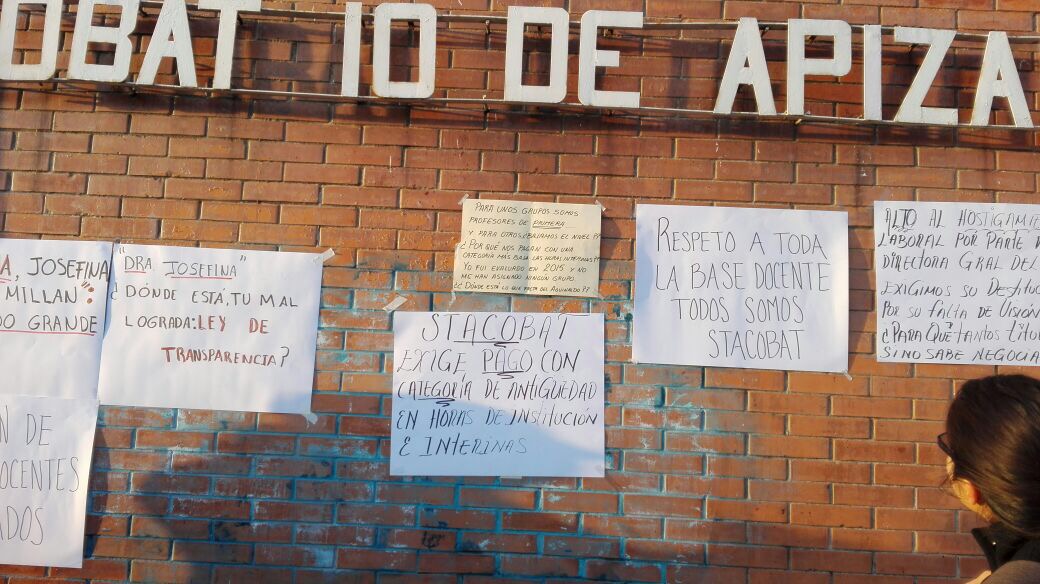 OBAT 10 DE APIZA
A, JOSEFINA
MILLAN"?
DO GRANDE
"DRA, JOSEFINA"
¿DÓNDE ESTÁ, TU MAL
LOGRADA: LEY DE
TRANSPARENCIA?
N DE
OCENTES
ADOS
PARA UNOS GRUPOS SOMOS
PROFESORES DE PRIMERA
Y PARA OTROS ¿BAJAMOS EL NIVEL??
¿POR QUÉ NOS PAGAN CON UNA
CATEGORIA MAS BAJA LAS HORAS INTERINAS??
YO FUI EVALUADO EN 2015 Y NO
ME HAN ASIGNADO NINGUN GRUPO
¿DÓNDE ESTÁ LO QUE FALTA DEL AGUINALDO??
STACOBAT
EXIGE PAGO CON
CATEGORÍA DE ANTIGÜEDAD
EN HORAS DE INSTITUCIÓN
E INTERINAS
RESPETO A TODA
LA BASE DOCENTE
TODOS SOMOS
STACOBAT
ALTO AL HOSTIGAMIE
LABORAL POR PARTE D
DIRECTORA GRAL DEL
EXIGIMOS SU DESTITUC
POR SU FALTA DE VISIÓN
¿PARA QUÉ TANTOS TÍTUL
SI NO SABE NEGOCIA